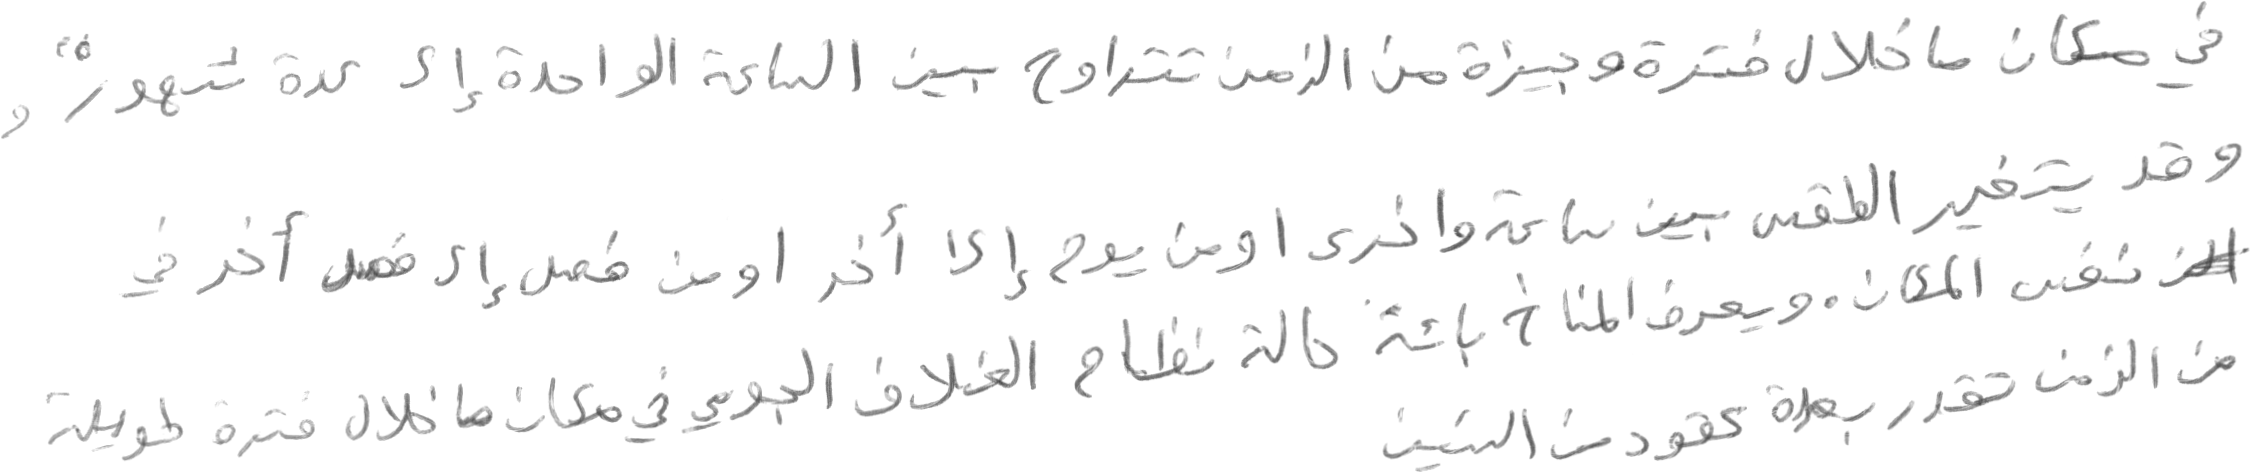 في مكان ما خلال فترة وجيزة من الزمن تتراوح بين الساعة الواحدة إلى عدة شهور"،
وقد يتغير الطقس بين ساعة واخرى او من يوم إلى أخر او من فصل إلى فصل أخر في
نفس المكان. ويعرف المناخ بانة حالة نظام الغلاف الجوي في مكان ما خلال فترة طويلة
من الزمن تقدر بعدة عقود من السنين